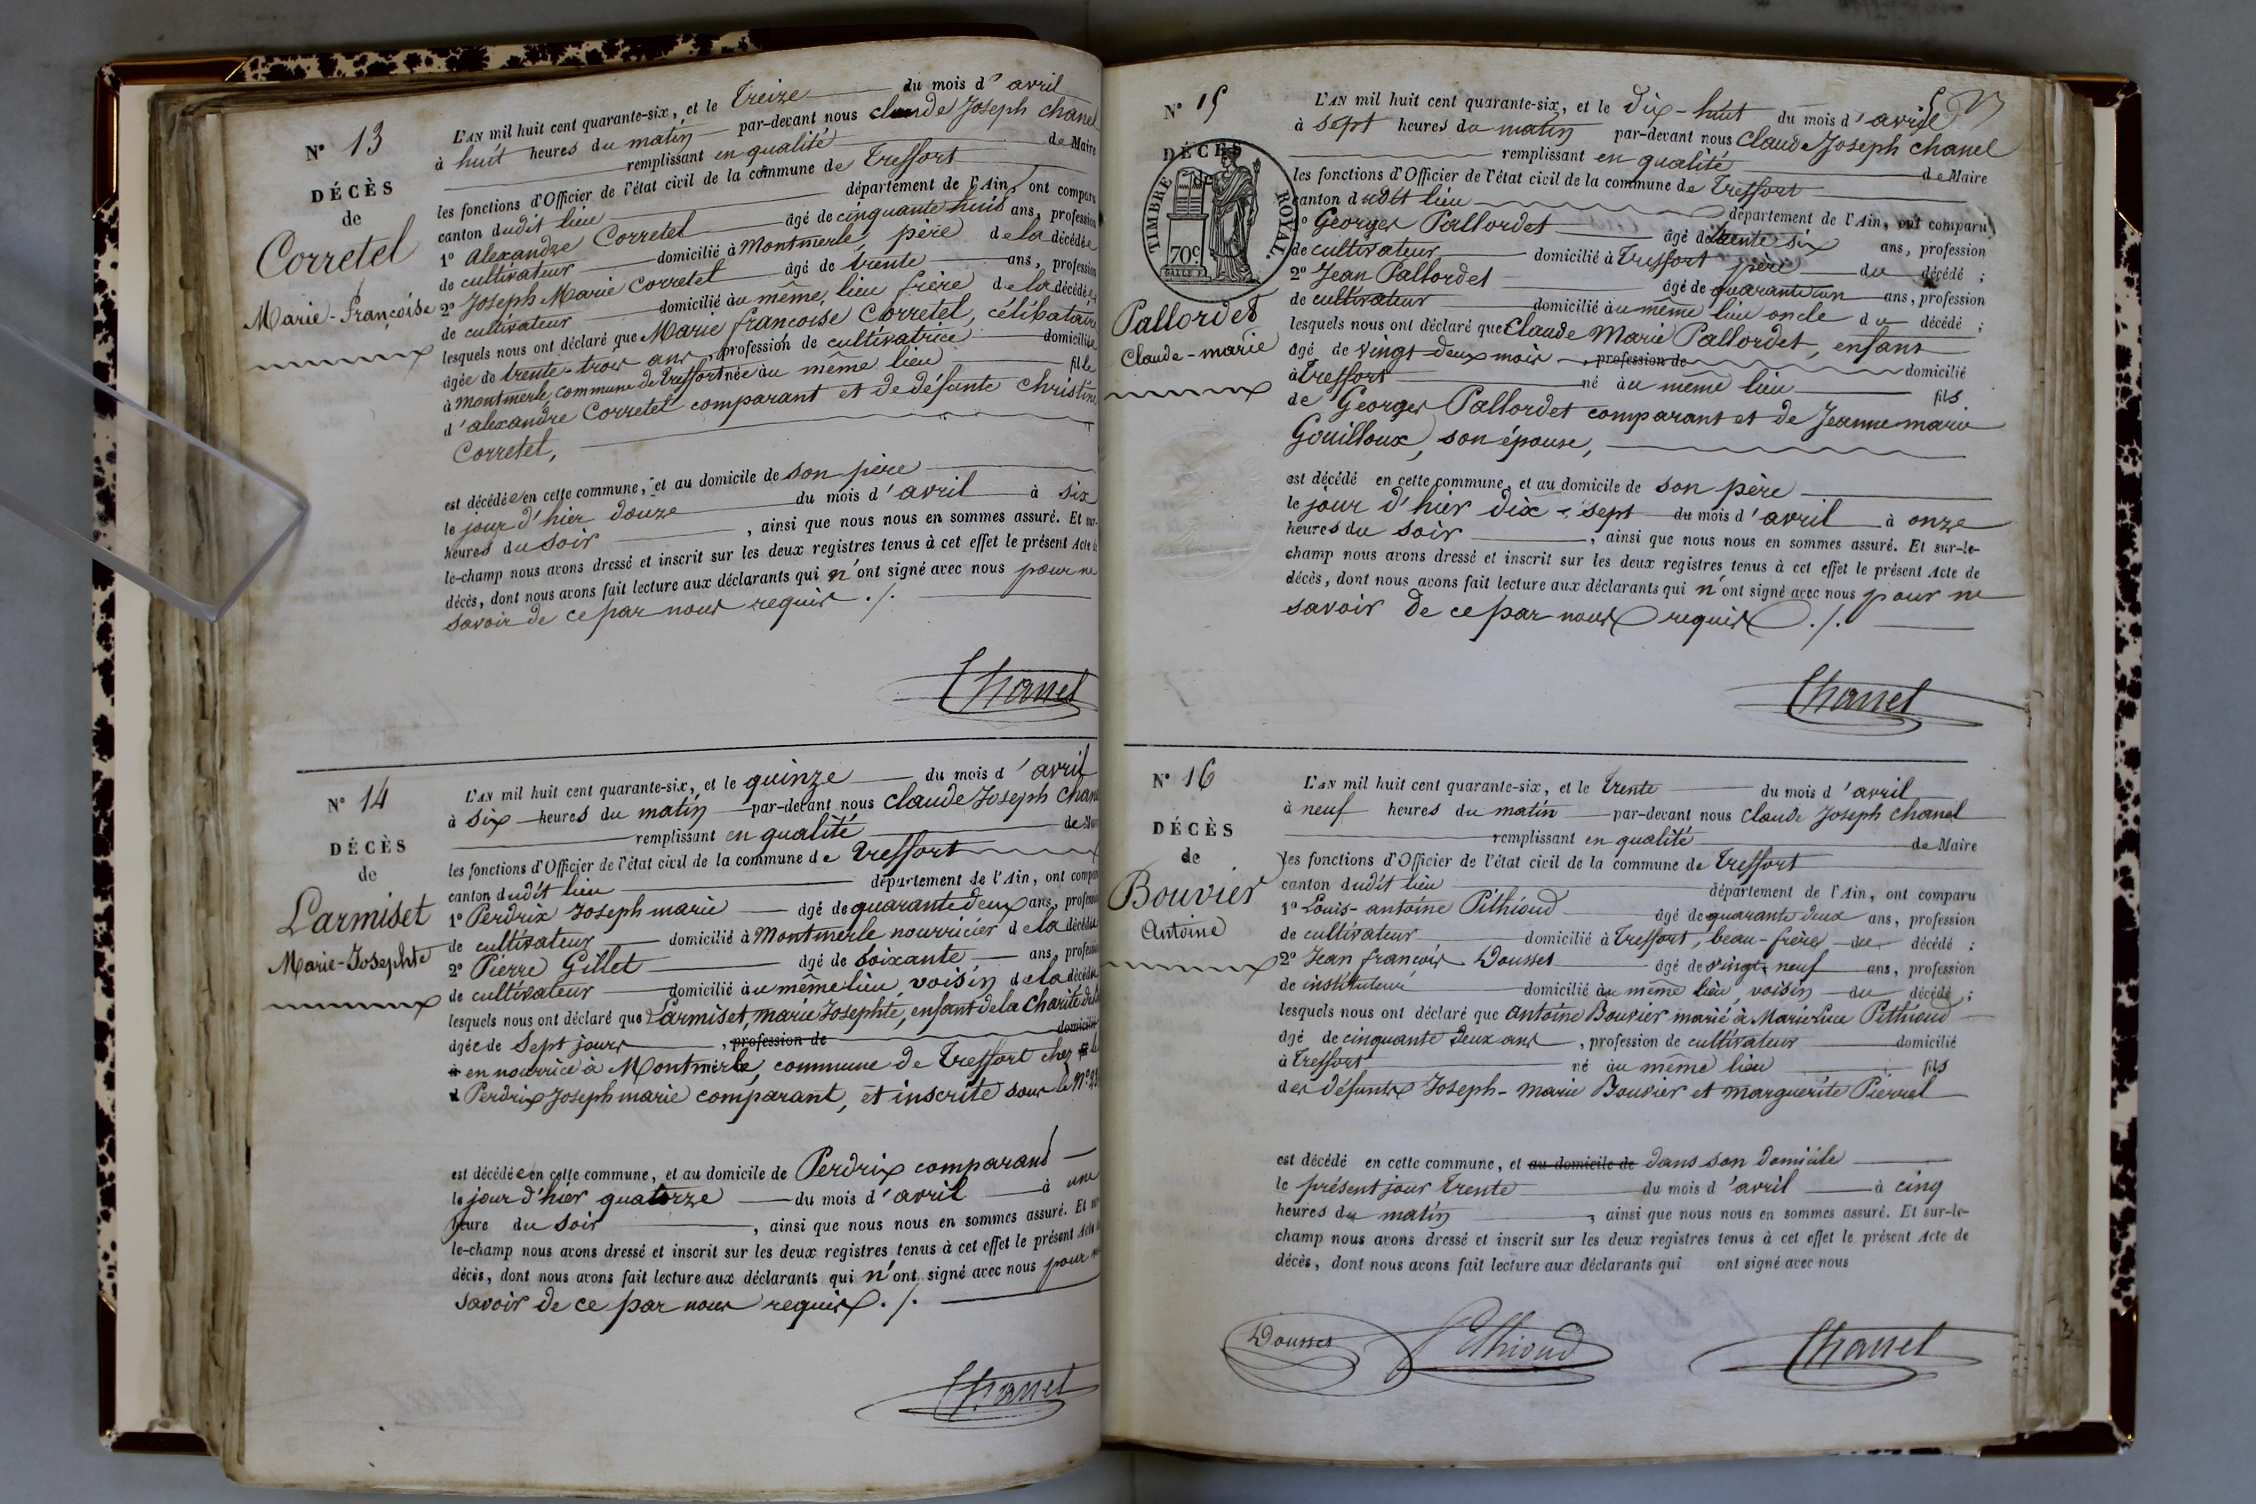 N° 13
DÉCÈS
de
Corretel
Marie-Françoise
L'AN mil huit cent quarante-six, et le treize du mois d'avril
à huit heures du matin par-devant nous claude Joseph chanel
remplissant en qualité de Maire
les fonctions d'Officier de l'état civil de la commune de Treffort
canton dudit lieu département de l'Ain, ont comparu
1° Alexandre Corretel âgé de cinquante huit ans, profession
de cultivateur domicilié à Montmerle, père de la décédée
2° Joseph Marie Corretel âgé de trente ans, profession
de cultivateur domicilié au même lieu frère de la décédée
lesquels nous ont déclaré que Marie françoise Corretel, célibataire
âgée de trente-trois ans, profession de cultivatrice domiciliée
à Montmerle, commune de Treffort née au même lieu fille
d'alexandre Corretel comparant et de défunte Christine
Corretel,
est décédée en cette commune, et au domicile de son père
le jour d'hier douze du mois d'avril à six
heures du soir, ainsi que nous nous en sommes assuré. Et sur-
le-champ nous avons dressé et inscrit sur les deux registres tenus à cet effet le présent Acte de
décès, dont nous avons fait lecture aux déclarants qui n'ont signé avec nous pour ne
savoir de ce par nous requis ./.
Chanel
N° 14
DÉCÈS
de
Larmiset
Marie-Josephte
L'AN mil huit cent quarante-six, et le quinze du mois d'avril
à six heures du matin par-devant nous claude Joseph Chan
remplissant en qualité de Mai
les fonctions d'Officier de l'état civil de la commune de Treffort
canton dudit lieu département de l'Ain, ont compar
1° Perdrix Joseph marie âgé de quarante deux ans, profession
de cultivateur domicilié à Montmerle nourricier de la décédée
2° Pierre Gillet âgé de soixante ans, profession
de cultivateur domicilié au même lieu, voisin de la décédée
lesquels nous ont déclaré que Larmiset, marie Josephte, enfant de la Charité de
âgée de Sept jours, profession de domicilié
en nourrice à Montmerle, commune de Treffort chez le
d Perdrix Joseph marie comparant, et inscrite sous le N°
est décédée en cette commune, et au domicile de Perdrix comparant
le jour d'hier quatorze du mois d'avril à une
heure du soir, ainsi que nous nous en sommes assuré. Et sur
le-champ nous avons dressé et inscrit sur les deux registres tenus à cet effet le présent Acte
décès, dont nous avons fait lecture aux déclarants qui n'ont signé avec nous pour ne
savoir de ce par nous requis ./.
Chanel
N° 15
DÉCÈS
TIMBRE ROYAL.
70c
Pallordet
Claude-marie
L'AN mil huit cent quarante-six, et le dix-huit du mois d'avril
à sept heures du matin par-devant nous Claude Joseph Chanel
remplissant en qualité de Maire
les fonctions d'Officier de l'état civil de la commune de Treffort
canton dudit lieu département de l'Ain, ont comparu
1° Georges Pallordet âgé de trente six ans, profession
de cultivateur domicilié à Treffort père du décédé ;
2° Jean Pallordet âgé de quarante un ans, profession
de cultivateur domicilié au même lieu oncle du décédé ;
lesquels nous ont déclaré que Claude Marie Pallordet, enfant
âgé de vingt-deux mois, profession de domicilié
à Treffort né au même lieu fils
de Georges Pallordet comparant et de Jeanne marie
Gouilloux, son épouse,
est décédé en cette commune, et au domicile de son père
le jour d'hier dix-sept du mois d'avril à onze
heures du soir, ainsi que nous nous en sommes assuré. Et sur-le-
champ nous avons dressé et inscrit sur les deux registres tenus à cet effet le présent Acte de
décès, dont nous avons fait lecture aux déclarants qui n'ont signé avec nous pour ne
savoir de ce par nous requis ./.
Chanel
N° 16
DÉCÈS
de
Bouvier
Antoine
L'AN mil huit cent quarante-six, et le trente du mois d'avril
à neuf heures du matin par-devant nous Claude Joseph Chanel
remplissant en qualité de Maire
les fonctions d'Officier de l'état civil de la commune de Treffort
canton dudit lieu département de l'Ain, ont comparu
1° Louis-antoine Pithioud âgé de quarante deux ans, profession
de cultivateur domicilié à Treffort, beau-frère du décédé ;
2° Jean françois Dousset âgé de vingt-neuf ans, profession
de instituteur domicilié au même lieu, voisin du décédé ;
lesquels nous ont déclaré que antoine Bouvier marié à Marie Luce Pithioud
âgé de cinquante deux ans, profession de cultivateur domicilié
à Treffort né au même lieu fils
des défunts Joseph-marie Bouvier et marguerite Pierrel
est décédé en cette commune, et au domicile de dans son domicile
le présent jour trente du mois d'avril à cinq
heures du matin, ainsi que nous nous en sommes assuré. Et sur-le-
champ nous avons dressé et inscrit sur les deux registres tenus à cet effet le présent Acte de
décès, dont nous avons fait lecture aux déclarants qui ont signé avec nous
Dousset Pithioud Chanel